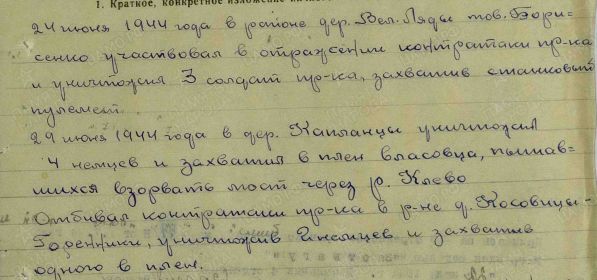 1. Краткое, конкретное изложение
24 июня 1944 года в районе дер. Вел. Ляды тов. Бори-
сенко участвовал в отражении контратаки пр-ка
и уничтожил 3 солдат пр-ка, захватив станковый
пулемет.
29 июня 1944 года в дер. Капланцы уничтожил
4 немцев и захватил в плен власовца, пытав-
шихся взорвать мост через р. Клево
Отбивал контратаки пр-ка в р-не д. Косовицы-
Горенички, уничтожив 2 немцев и захватив
одного в плен.